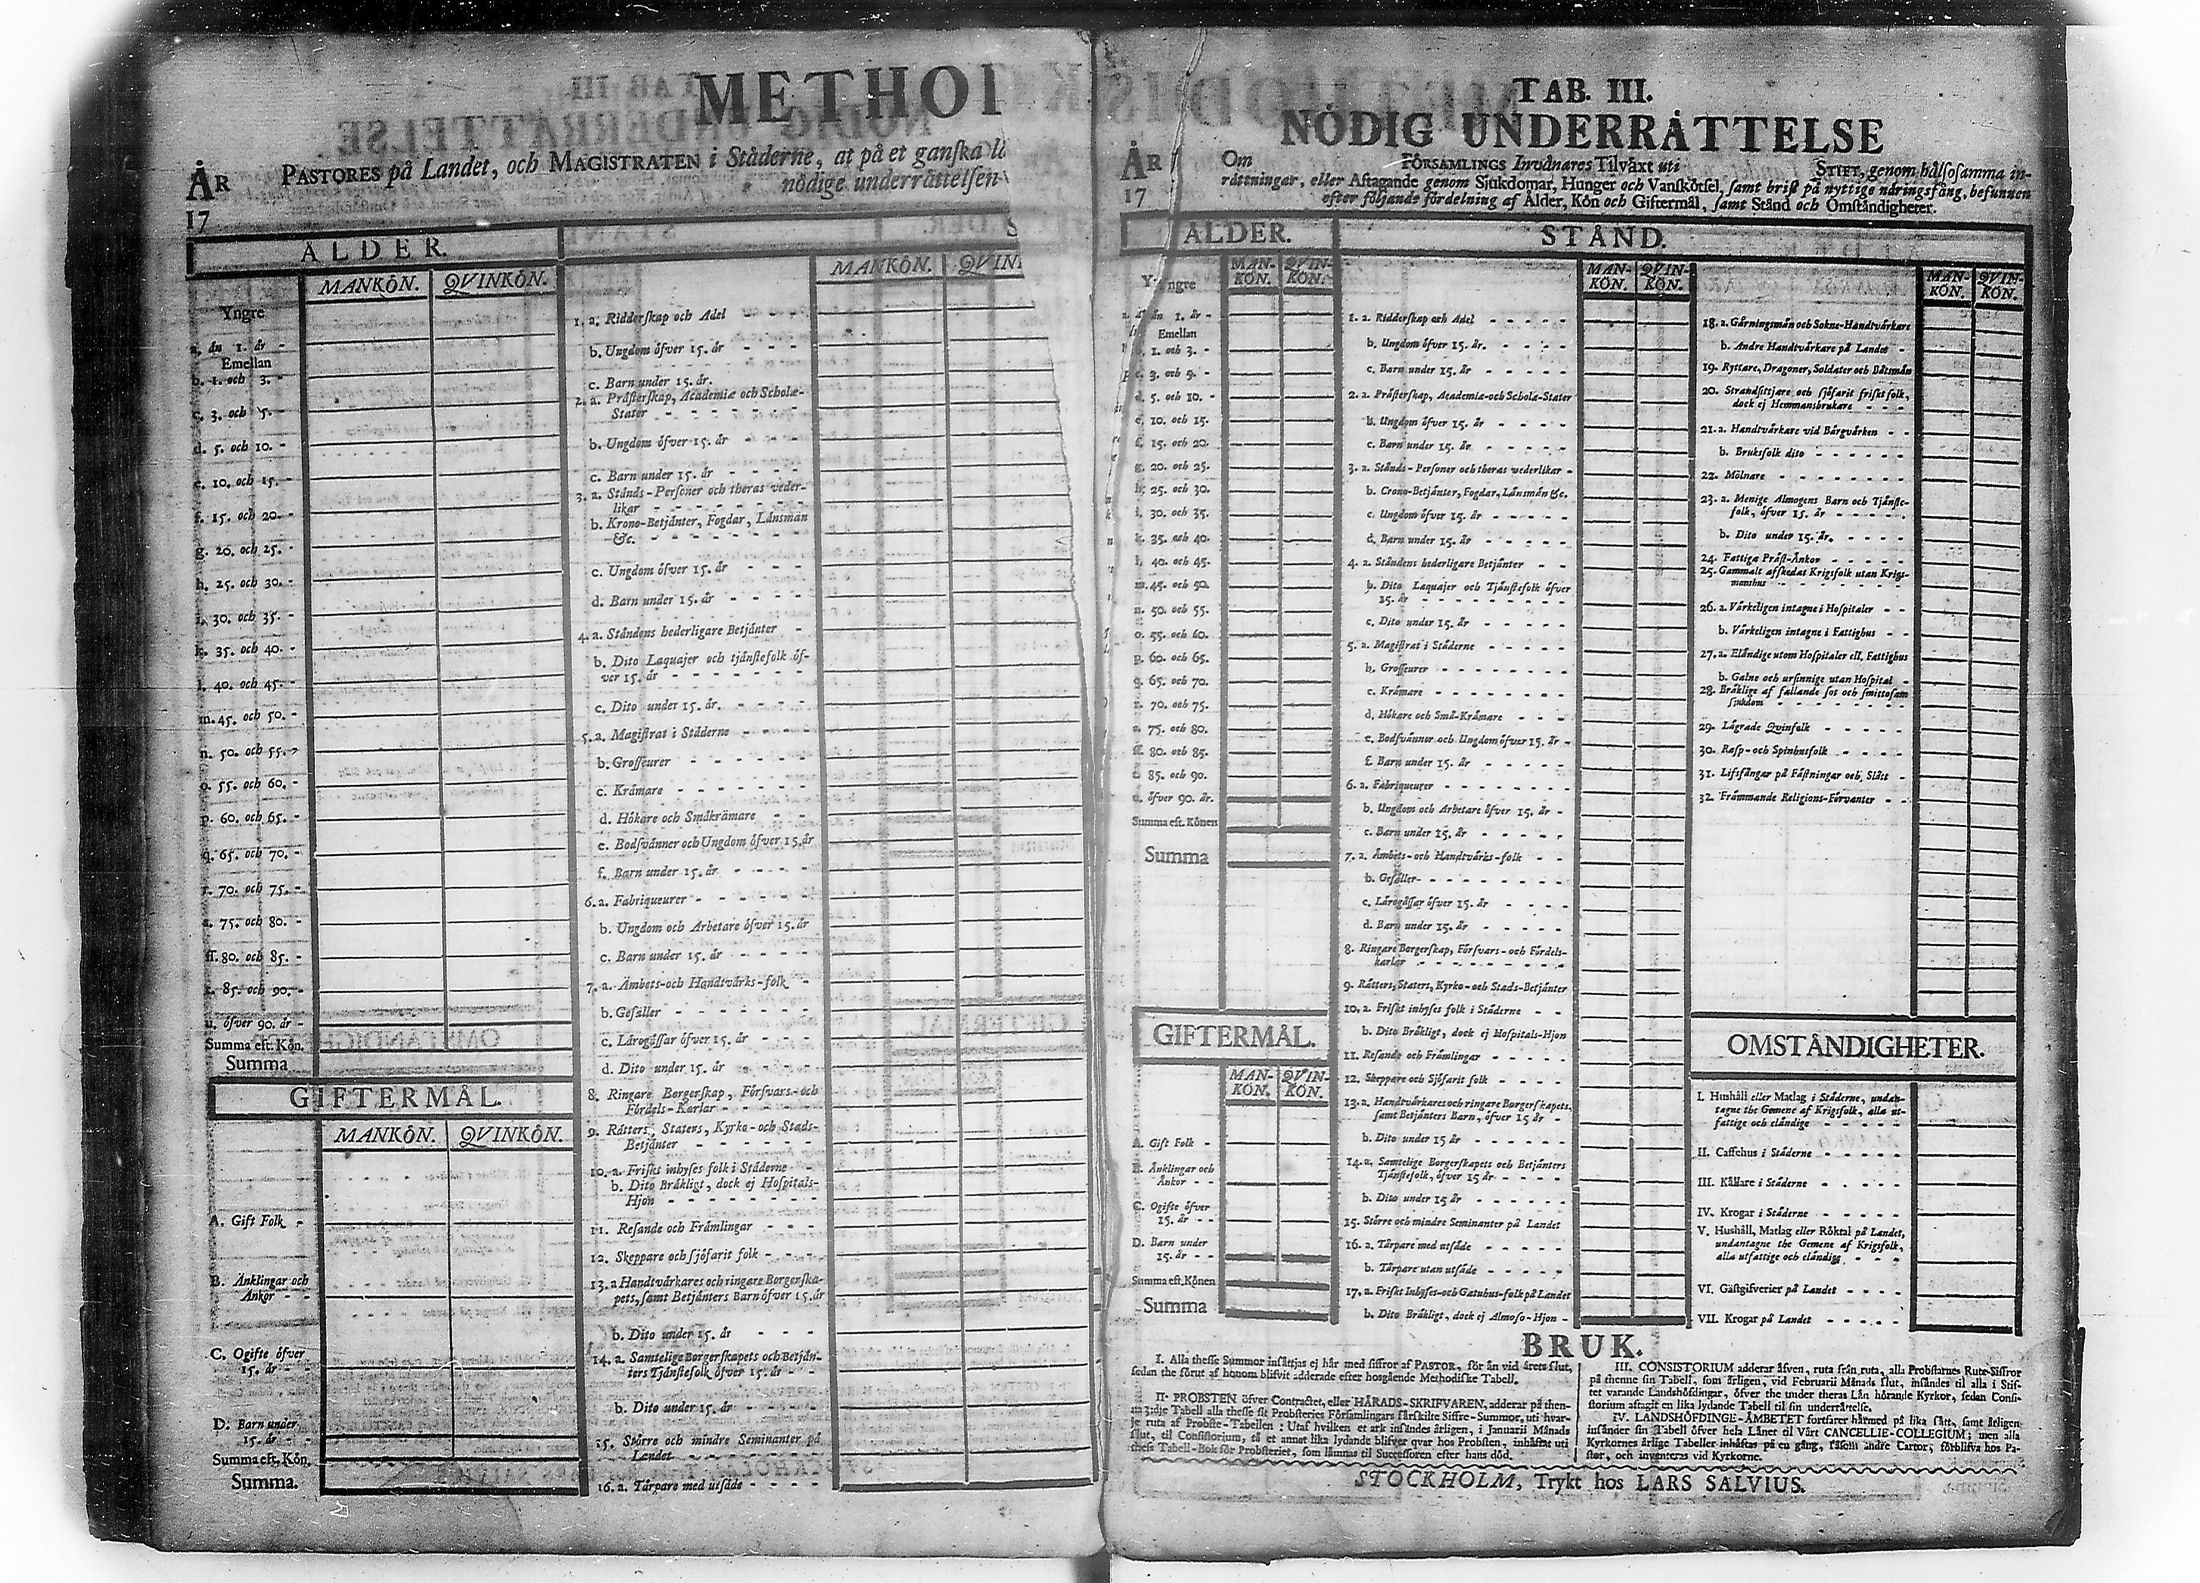 METHO
ÅR
17
PASTORES på Landet, och MAGISTRATEN i Stӓderne, at på et ganſka
nödige underrättelſen
ÅLDER.
MANKÖN. QVINKÖN.
Yngre
a. än 1. år -
Emellan
b. 1. och 3. -
c. 3. och 5. -
d. 5. och 10. -
e. 10. och 15. -
f. 15. och 20. -
g. 20. och 25. -
h. 25. och 30. -
i. 30. och 35. -
k. 35. och 40. -
l. 40. och 45. -
m. 45. och 50. -
n. 50. och 55. -
o. 55. och 60. -
p. 60. och 65. -
q. 65. och 70. -
r. 70. och 75. -
s. 75. och 80. -
ſſ. 80. och 85. -
t. 85. och 90. -
u. öfver 90. år -
Summa eft. Kön.
Summa
GIFTERMÅL.
MANKÖN. QVINKÖN.
A. Gift Folk -
B. Änklingar och
Änkor - -
C. Ogifte öfver
15. år -
D. Barn under
15. år - -
Summa eft. Kön.
Summa.
MANKÖN. QVIN
1. a. Ridderſkap och Adel
b. Ungdom öfver 15. år - - - -
c. Barn under 15. år.
2. a. Präſterſkap, Academiæ och Scholæ-
Stater - - - - - -
b. Ungdom öfver 15. år - - - -
c. Barn under 15. år - - - -
3. a. Stånds-Perſoner och theras veder-
likar - - - - - -
b. Krono-Betjänter, Fogdar, Länsmän
&c. - - - - - - -
c. Ungdom öfver 15. år - - -
d. Barn under 15. år - - - -
4. a. Ståndens hederligare Betjänter -
b. Dito Laquajer och tjänſtefolk öf-
ver 15. år - - - - -
c. Dito under 15. år. - - - -
5. a. Magiſtrat i Städerne - - - -
b. Groſſeurer - - - - -
c. Krämare - - - - - -
d. Hökare och Småkrämare - -
e. Bodſvänner och Ungdom öfver 15. år
f. Barn under 15. år - - - -
6. a. Fabriqueurer - - - - -
b. Ungdom och Arbetare öfver 15. år
c. Barn under 15. år - - - -
7. a. Ämbets-och Handtvärks-folk -
b. Geſäller - - - - - -
c. Lärogåſſar öfver 15. år - - -
d. Dito under 15. år - - - -
8. Ringare Borgerſkap, Förſvars-och
Fördels-Karlar - - - -
9. Rätters, Staters, Kyrko-och Stads-
Betjänter - - - - - -
10. a. Friſkt inhyſes folk i Städerne -
b. Dito Bräkligt, dock ej Hoſpitals-
Hjon - - - - - -
11. Reſande och Främlingar - - -
12. Skeppare och ſjöfarit folk - - -
13. a Handtvärkares och ringare Borgerſka-
pets, ſamt Betjänters Barn öfver 15. år
b. Dito under 15. år - - -
14. a. Samtelige Borgerſkapets och Betjän-
ters Tjänſtefolk öfver 15. år - -
b. Dito under 15. år - - - -
15. Större och mindre Seminanter på
Landet - - - - - -
16. a. Tårpare med utſäde - - - -
TAB. III.
NÖDIG UNDERRÄTTELSE
ÅR
17
Om FÖRSAMLINGS Invånares Tilväxt uti STIFT, genom hälſoſamma in-
rättningar, eller Aftagande genom Sjukdomar, Hunger och Vanſkötſel, ſamt briſt på nyttige näringsfång, befunnen
efter följande fördelning af Ålder, Kön och Giftermål, ſamt Stånd och Omſtändigheter.
ÅLDER. STÅND.
MAN-KÖN. QVIN-KÖN.
Yngre
a. än 1. år -
Emellan
b. 1. och 3. -
c. 3. och 5. -
d. 5. och 10. -
e. 10. och 15.
f. 15. och 20.
g. 20. och 25.
h. 25. och 30.
i. 30. och 35.
k. 35. och 40.
l. 40. och 45.
m. 45. och 50.
n. 50. och 55.
o. 55. och 60.
p. 60. och 65.
q. 65. och 70.
r. 70. och 75.
s. 75. och 80.
ſſ. 80. och 85.
t. 85. och 90.
u. öfver 90. år.
Summa eft. Könen
Summa
GIFTERMÅL.
MAN-KÖN. QVIN-KÖN.
A. Gift Folk -
B. Änklingar och
Änkor - -
C. Ogifte öfver
15. år - -
D. Barn under
15. år - -
Summa eft. Könen
Summa
MAN-KÖN. QVIN-KÖN.
1. a. Ridderſkap och Adel - - - - -
b. Ungdom öfver 15. år. - - - -
c. Barn under 15. år - - - - -
2. a. Präſterſkap, Academiæ-och Scholæ-Stater
b. Ungdom öfver 15. år - - - -
c. Barn under 15. år - - - - -
3. a. Stånds-Perſoner och theras vederlikar -
b. Crono-Betjänter, Fogdar, Länsmän &c.
c. Ungdom öfver 15. år - - - - -
d. Barn under 15. år - - - - -
4. a. Ståndens hederligare Betjänter - -
b. Dito Laquajer och Tjänſtefolk öfver
15. år - - - - - - - -
c. Dito under 15. år - - - - -
5. a. Magiſtrat i Städerne - - - - -
b. Groſſeurer - - - - - - -
c. Krämare - - - - - - -
d. Hökare och Små-Krämare - - -
e. Bodſvänner och Ungdom öfver 15. år -
f. Barn under 15. år - - - - -
6. a. Fabriqueurer - - - - - - -
b. Ungdom och Arbetare öfver 15. år -
c. Barn under 15. år - - - - -
7. a. Ämbets-och Handtvärks-folk - -
b. Geſäller - - - - - - - -
c. Lärogåſſar öfver 15. år - - - -
d. Barn under 15. år - - - - -
8. Ringare Borgerſkap, Förſvars-och Fördels-
karlar - - - - - - - -
9. Rätters, Staters, Kyrko-och Stads-Betjänter
10. a. Friſkt inhyſes folk i Städerne - -
b. Dito Bräkligt, dock ej Hoſpitals-Hjon
11. Reſande och Främlingar - - - - -
12. Skeppare och Sjöfarit folk - - - -
13. a. Handtvärkares och ringare Borgerſkapets,
ſamt Betjänters Barn, öfver 15 år - -
b. Dito under 15 år - - - - - -
14. a. Samtelige Borgerſkapets och Betjänters
Tjänſtefolk, öfver 15. år - - - -
b. Dito under 15 år - - - - - -
15. Större och mindre Seminanter på Landet
16. a. Tårpare med utſäde - - - - -
b. Tårpare utan utſäde - - - - -
17. a. Friſkt Inhyſes-och Gatuhus-folk på Landet
b. Dito Bräkligt, dock ej Almoſo-Hjon -
MAN-KÖN. QVIN-KÖN.
18. a. Gärningsmän och Sokne-Handtvärkare
b. Andre Handtvärkare på Landet -
19. Ryttare, Dragoner, Soldater och Båtsmän
20. Strandſittjare och ſjöfarit friſkt folk,
dock ej Hemmansbrukare - - -
21. a. Handtvärkare vid Bärgvärken - -
b. Bruksfolk dito - - - - - -
22. Mölnare - - - - - - - -
23. a. Menige Almogens Barn och Tjänſte-
folk, öfver 15. år - - - - -
b. Dito under 15. år. - - - - -
24. Fattiga Präſt-Änkor - - - - -
25. Gammalt afſkedat Krigsfolk utan Krigs-
manshus - - - - - - -
26. a. Värkeligen intagne i Hoſpitaler - -
b. Värkeligen intagne i Fattighus - -
27. a. Eländige utom Hoſpitaler ell. Fattighus
b. Galne och urſinnige utan Hoſpital -
28. Bräklige af fallande ſot och ſmittoſam
ſjukdom - - - - - - -
29. Lägrade Qvinfolk - - - - -
30. Raſp-och Spinhusfolk - - - - -
31. Lifsfångar på Fäſtningar och Slått -
32. Främmande Religions-Förvanter - -
OMSTÄNDIGHETER.
I. Hushåll eller Matlag i Städerne, undan-
tagne the Gemene af Krigsfolk, alla ut-
fattige och eländige - - - - -
II. Caffehus i Städerne - - - - -
III. Källare i Städerne - - - - -
IV. Krogar i Städerne - - - - -
V. Hushåll, Matlag eller Röktal på Landet,
undantagne the Gemene af Krigsfolk,
alla utfattige och eländige - - -
VI. Gäſtgifverier på Landet - - - -
VII. Krogar på Landet - - - - -
BRUK.
I. Alla theſſe Summor inſättjas ej här med ſiffror af PASTOR, för än vid årets ſlut,
ſedan the förut af honom blifvit adderade efter hosgående Methodiſke Tabell.
II. PROBSTEN öfver Contractet, eller HÄRADS-SKRIFVAREN, adderar på then-
na 3:dje Tabell alla theſſe ſit Probſteries Förſamlingars ſärſkilte Siffre-Summor, uti hvar-
je ruta af Probſte-Tabellen: Utaf hvilken et ark inſändes årligen, i Januarii Månads
ſlut, til Conſiſtorium, få et annat lika lydande blifver qvar hos Probſten, inhäftat uti
theſs Tabell-Bok för Probſteriet, ſom lämnas til Succeſſoren efter hans död.
III. CONSISTORIUM adderar äfven, ruta från ruta, alla Probſtarnes Rute-Siffror
på thenne ſin Tabell, ſom årligen, vid Februarii Månads ſlut, inſändes til alla i Stif-
tet varande Landshöfdingar, öfver the under theras Län hörande Kyrkor, ſedan Conſi-
ſtorium aftagit en lika lydande Tabell til ſin underrättelſe.
IV. LANDSHÖFDINGE-ÄMBETET fortfarer härmed på lika ſätt, ſamt årligen
inſänder ſin Tabell öfver hela Länet til Vårt CANCELLIE-COLLEGIUM; men alla
Kyrkornes årlige Tabeller inhäftas på en gång, ſåſom andre Cartor, förblifva hos Pa-
ſtor, och inventeras vid Kyrkorne.
STOCKHOLM, Trykt hos LARS SALVIUS.